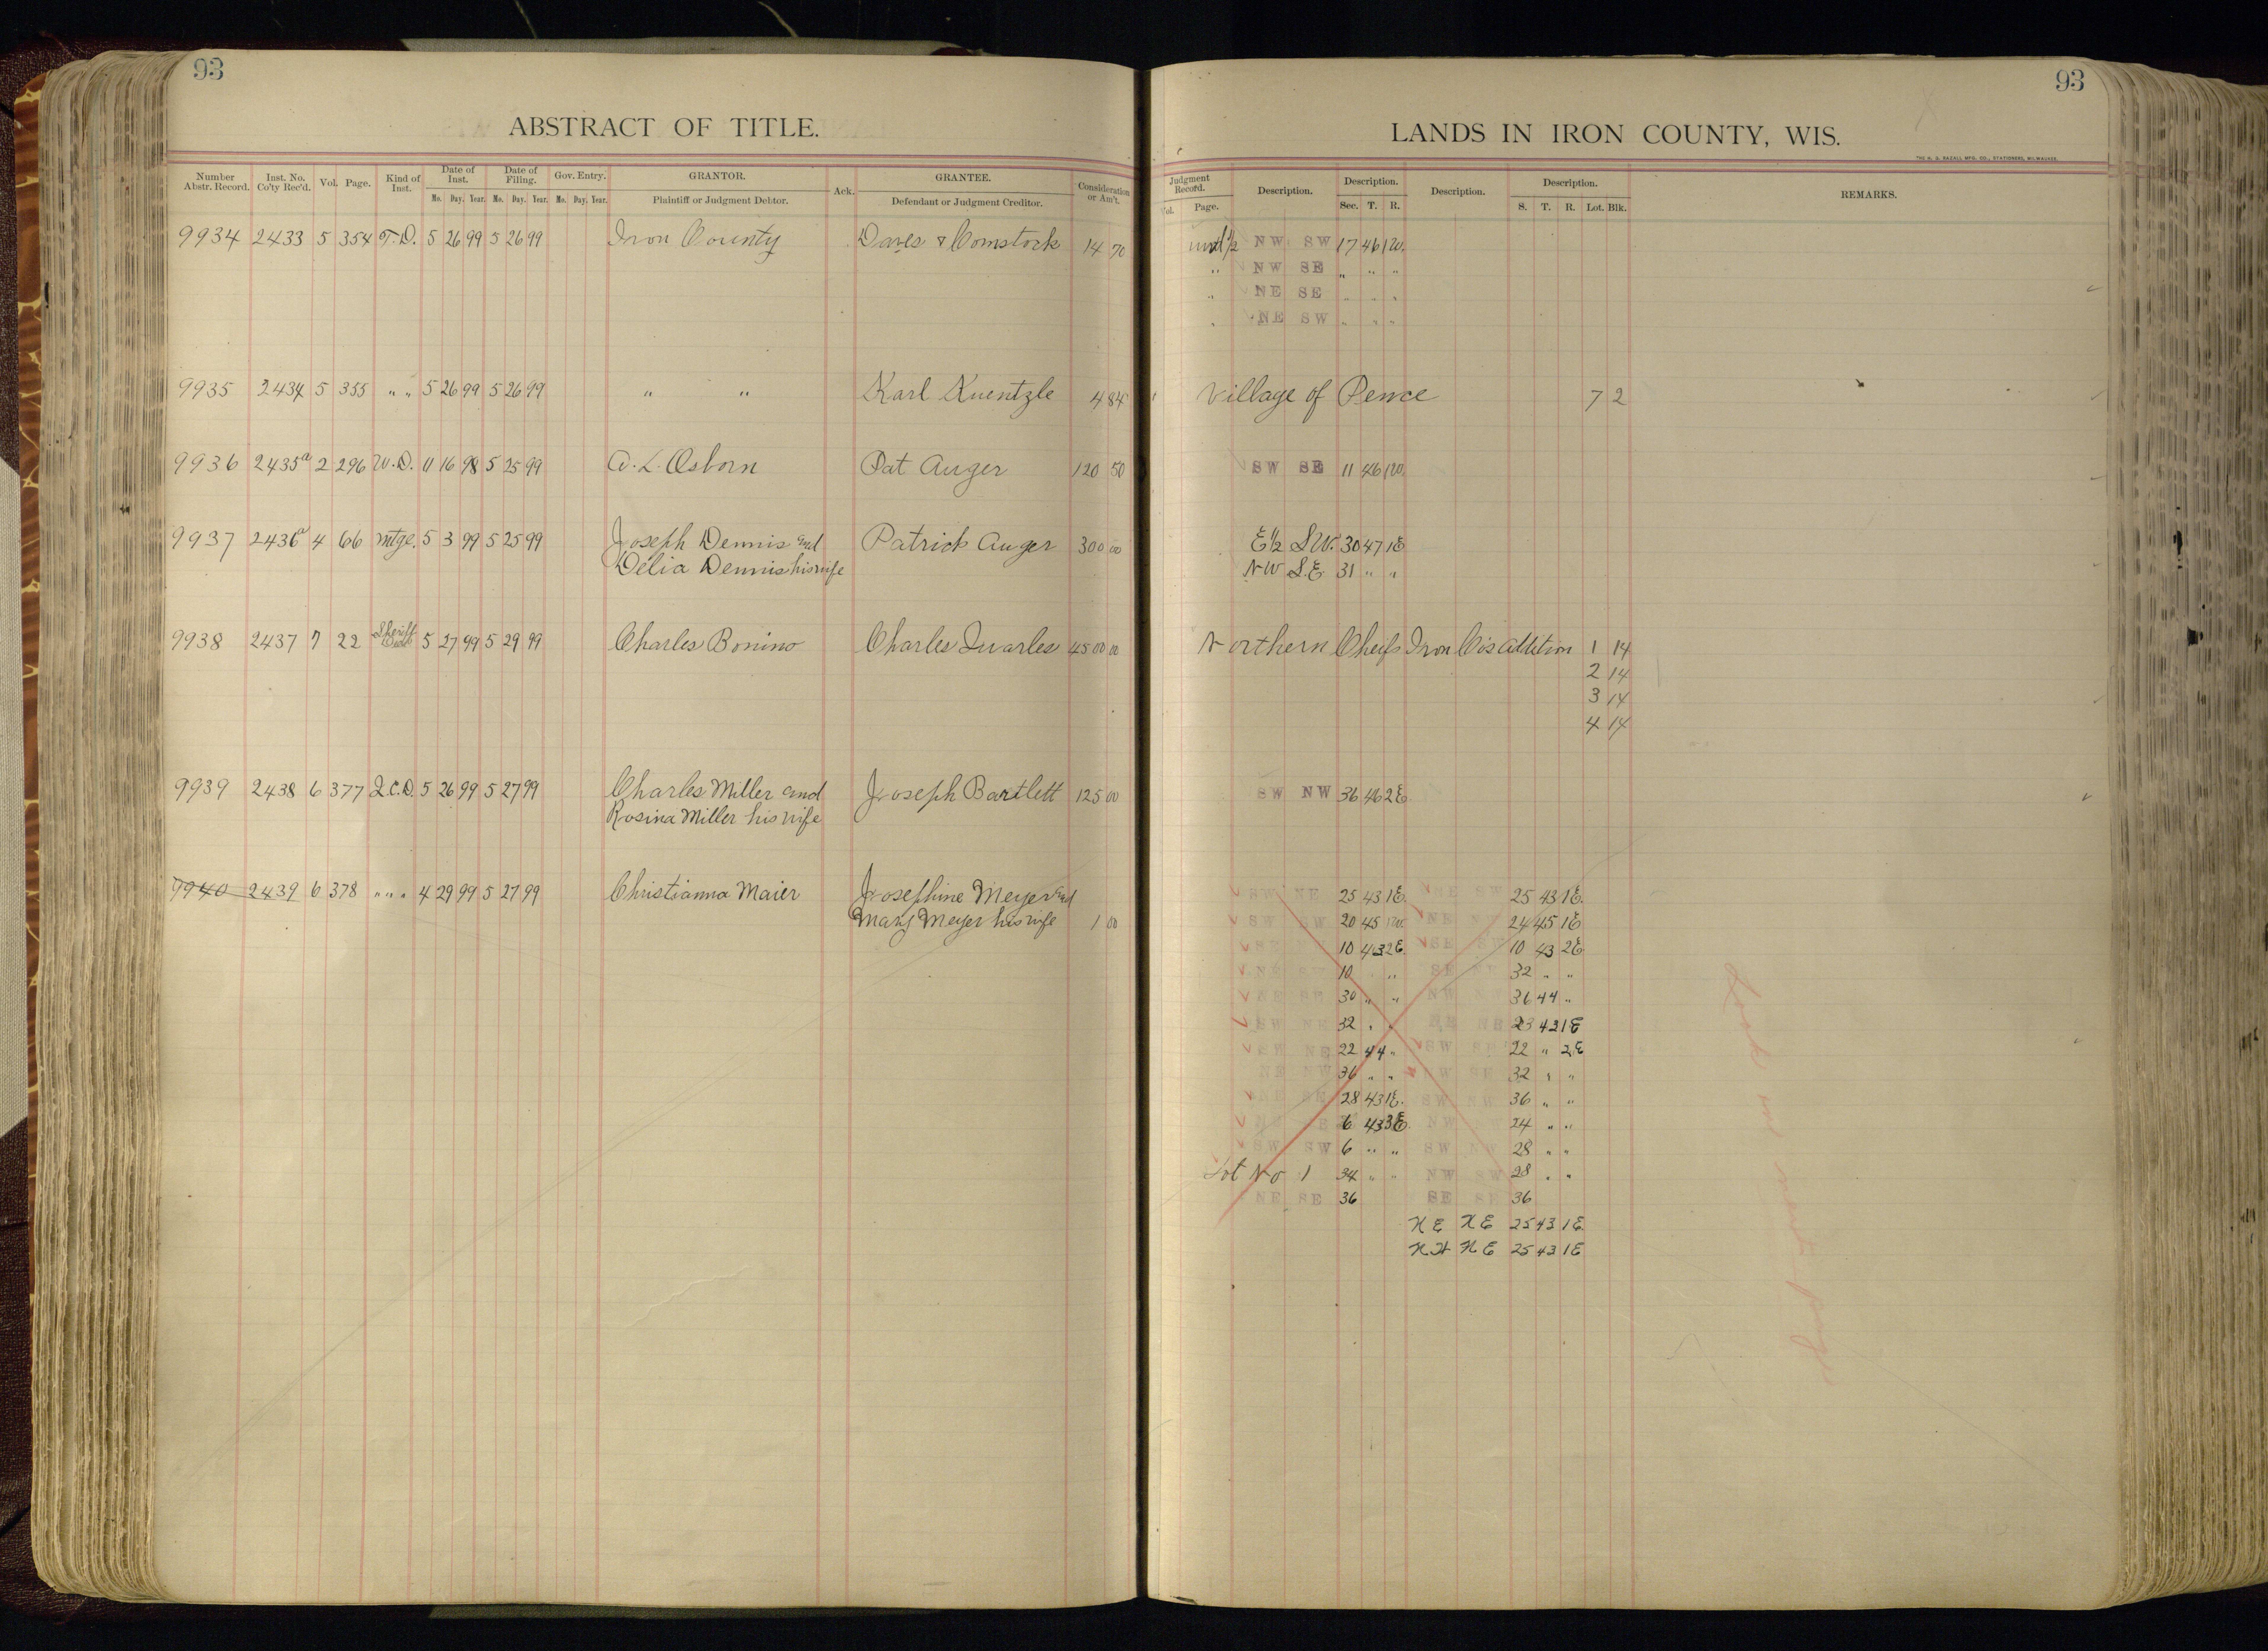 93
ABSTRACT OF TITLE.
Number Abstr. Record. Inst. No. Co'ty Rec'd. Vol. Page. Kind of Inst. Date of Inst. Date of Filing. Gov. Entry. GRANTOR. Ack. GRANTEE. Consideration or Am't.
Mo. Day. Year. Mo. Day. Year. Mo. Day. Year. Plaintiff or Judgment Debtor. Defendant or Judgment Creditor.
9934 2433 5 354 T.D. 5 26 99 5 26 99 Iron County & Comstock 14 70
9935 2434 5 355 " " 5 26 99 5 26 99 " " Karl Kuentzle 4 84
9936 2435a 2 296 W.D. 11 16 98 5 25 99 A. L. Osborn Pat Auger 120 50
9937 2436a 4 66 mtge. 5 3 99 5 25 99 Joseph Dennis and Patrick Auger 300 00
Delia Dennis his wife
9938 2437 7 22 Sheriff 5 27 99 5 29 99 Charles Bonino Charles Quarles 4500 00
9939 2438 6 377 Q.C.D. 5 26 99 5 27 99 Charles Miller and Joseph Bartlett 125 00
Rosina Miller his wife
9940 2439 6 378 " " " 4 29 99 5 27 99 Christianna Maier Josephine Meyer and
Mary Meyer his wife 1 00
93
LANDS IN IRON COUNTY, WIS.
THE H. G. RAZALL MFG. CO., STATIONERS, MILWAUKEE.
Judgment Record. Description. Description. Description. Description. REMARKS.
Vol. Page. Sec. T. R. S. T. R. Lot. Blk.
und 1/2 NW SW 17 46 1W.
" NW SE " " "
" NE SE " " "
" NE SW " " "
Village of Pence 7 2
SW SE 11 46 1W.
E½ S.W. 30 47 1E
NW S.E. 31 " "
Northern Cheifs Iron Co's Addition 1 14
2 14
3 14
4 14
SW NW 36 46 2E
SW NE 25 43 1E. NE SW 25 43 1E.
SW SW 20 45 1W. NE 24 45 1E
10 43 2E. SE 10 43 2E
NE 10 " SE 32 " "
30 " " NW 36 44 "
SW 32 " " NE 23 43 1E
NE 22 44 " SW SE 22 " 2E
NE 36 " " SE 32 " "
SE 28 43 1E. SW 36 " "
6 43 3E. NW 24 " "
SW SW 6 " " SW 28 " "
Lot No 1 34 " " NW SW 28 " "
NE SE 36 SE 36
NE NE 25 43 1E.
NW NE 25 43 1E